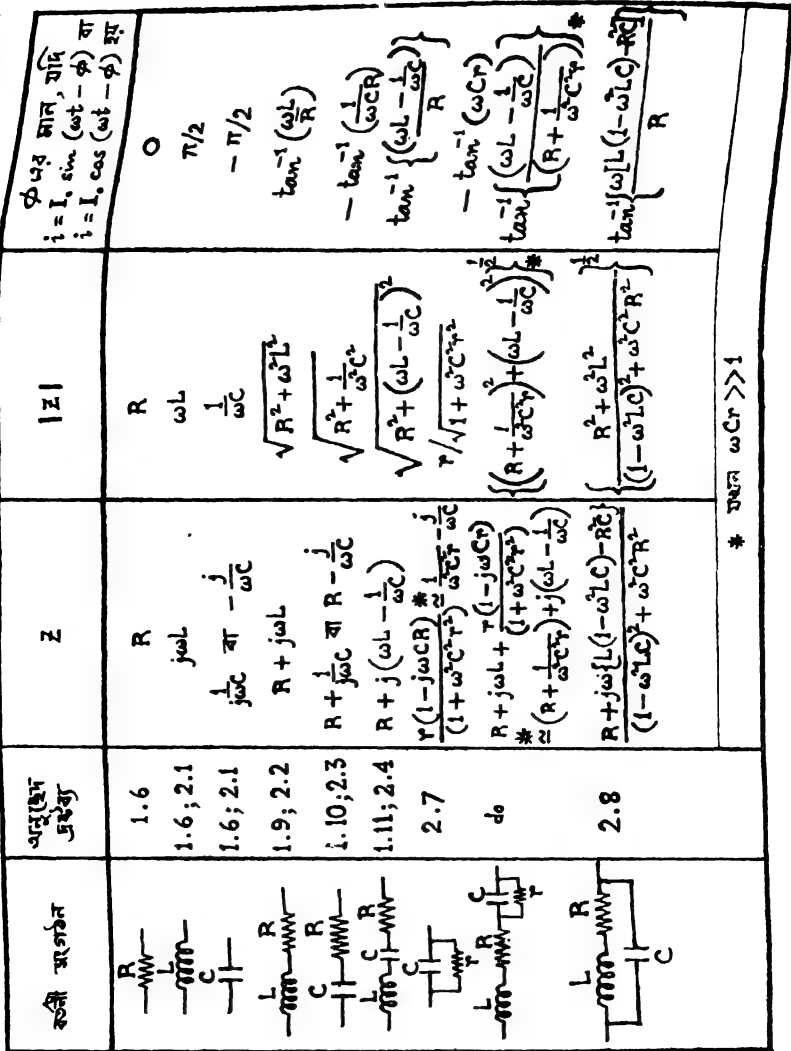 বর্তনী সংগঠন | অনুচ্ছেদ দ্রষ্টব্য | Z | |Z| | ϕ এর মান, যদি i = I₀ sin (ωt − ϕ) বা i = I₀ cos (ωt − ϕ) হয়
R | 1.6 | R | R | 0
L | 1.6; 2.1 | jωL | ωL | π/2
C | 1.6; 2.1 | 1/jωC বা −j/ωC | 1/ωC | −π/2
L R | 1.9; 2.2 | R + jωL | √(R² + ω²L²) | tan⁻¹(ωL/R)
C R | 1.10; 2.3 | R + 1/jωC বা R − j/ωC | √(R² + 1/ω²C²) | −tan⁻¹(1/ωCR)
L C R | 1.11; 2.4 | R + j(ωL − 1/ωC) | √(R² + (ωL − 1/ωC)²) | tan⁻¹{(ωL − 1/ωC)/R}
C r | 2.7 | r(1 − jωCR)/(1 + ω²C²r²) *≃ 1/ω²C²r − j/ωC | r/√(1 + ω²C²r²) | −tan⁻¹(ωCr)
L R C r | do | R + jωL + r(1 − jωCr)/(1 + ω²C²r²) *≃ (R + 1/ω²C²r) + j(ωL − 1/ωC) | {(R + 1/ω²C²r)² + (ωL − 1/ωC)²}^½ * | tan⁻¹{(ωL − 1/ωC)/(R + 1/ω²C²r)} *
L R C | 2.8 | R + jω{L(1 − ω²LC) − R²C}/(1 − ω²LC)² + ω²C²R² | {R² + ω²L²/(1 − ω²LC)² + ω²C²R²}^½ | tan⁻¹{ω[L(1 − ω²LC) − R²C]/R}
* যখন ωCr >> 1